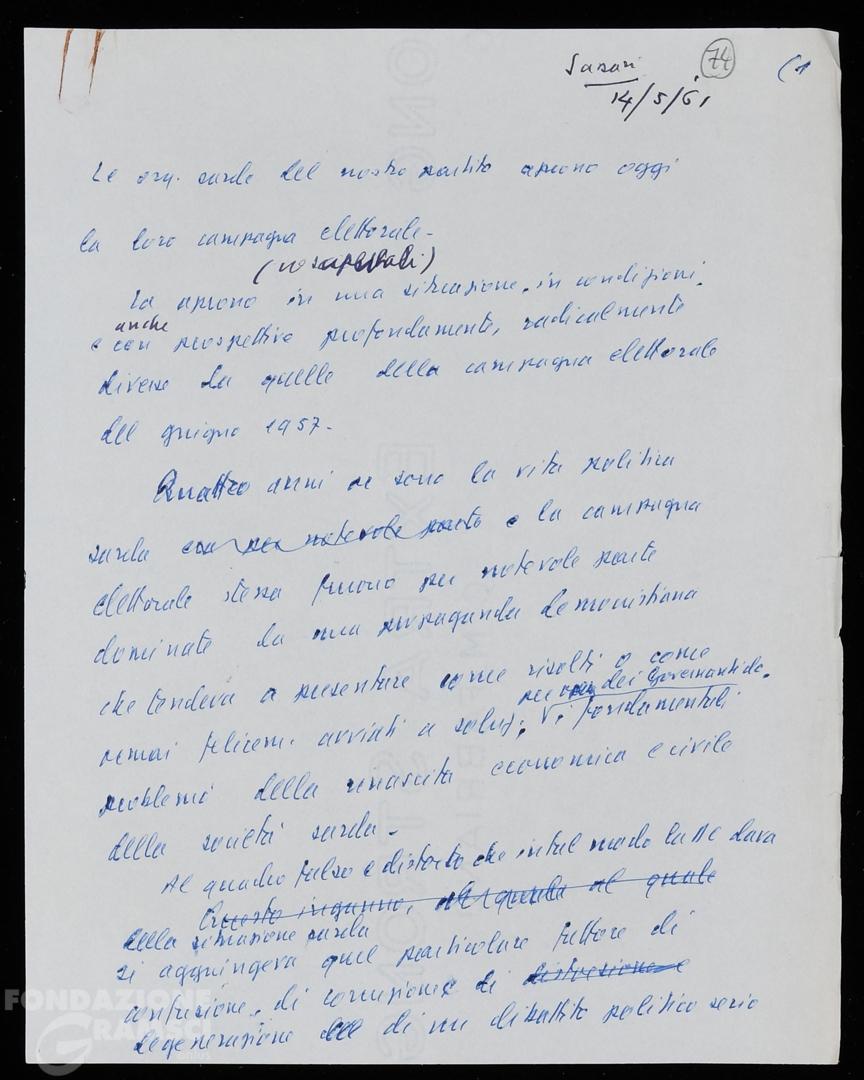 Sassari
74
(1
14/5/61
Le org. sarde del nostro partito aprono oggi
la loro campagna elettorale-
La aprono in una situazione, in condizioni,
anche
e con prospettive profondamente, radicalmente
diverse da quelle della campagna elettorale
del giugno 1957-
Quattro anni or sono la vita politica
sarda era per notevole parte e la campagna
elettorale stessa furono per notevole parte
dominate da una propaganda democristiana
che tendeva a presentare come risolti o come
per opera dei Governanti dc.
ormai felicem. avviati a soluz. i fondamentali
problemi della rinascita economica e civile
della società sarda-
Al quadro falso e distorto che in tal modo la DC dava
Questo inganno, al quale
della situazione sarda
si aggiungeva quel particolare fattore di
confusione, di corruzione e di distorsione e
degenerazione di un dibattito politico serio
FONDAZIONE
GRAMSCI
onlus